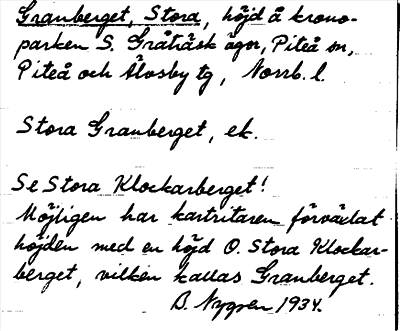 Granberget, Stora, höjd å krono-
parken S. Gråträsk ägor, Piteå sn,
Piteå och Älvsby tg, Norrb. l.
Stora Granberget, ek.
Se Stora Klockarberget!
Möjligen har kartritaren förväxlat
höjden med en höjd O. Stora Klockar-
berget, vilken kallas Granberget.
B. Nygren 1934.